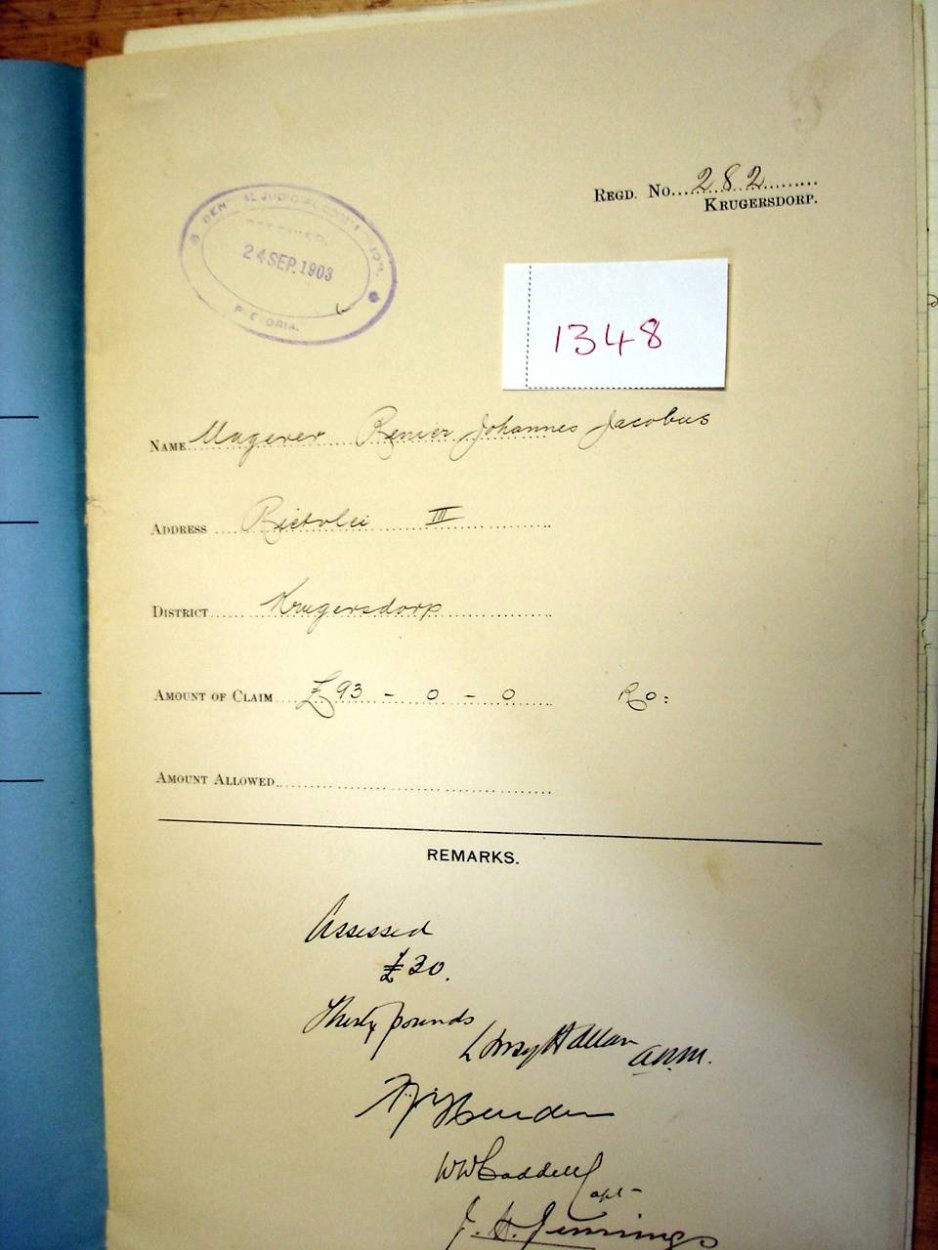 REGD. No. 282
KRUGERSDORP.
CENTRAL JUDICIAL COMMISSION.
24 SEP. 1903
PRETORIA.
1348
NAME Magerer Renier Johannes Jacobus
ADDRESS Rietvlei III
DISTRICT Krugersdorp
AMOUNT OF CLAIM £93 - 0 - 0 Ro:
AMOUNT ALLOWED
REMARKS.
Assessed
£30.
Thirty pounds
Allan A.R.M.
WW Caddell
Capt
J. H. Jennings